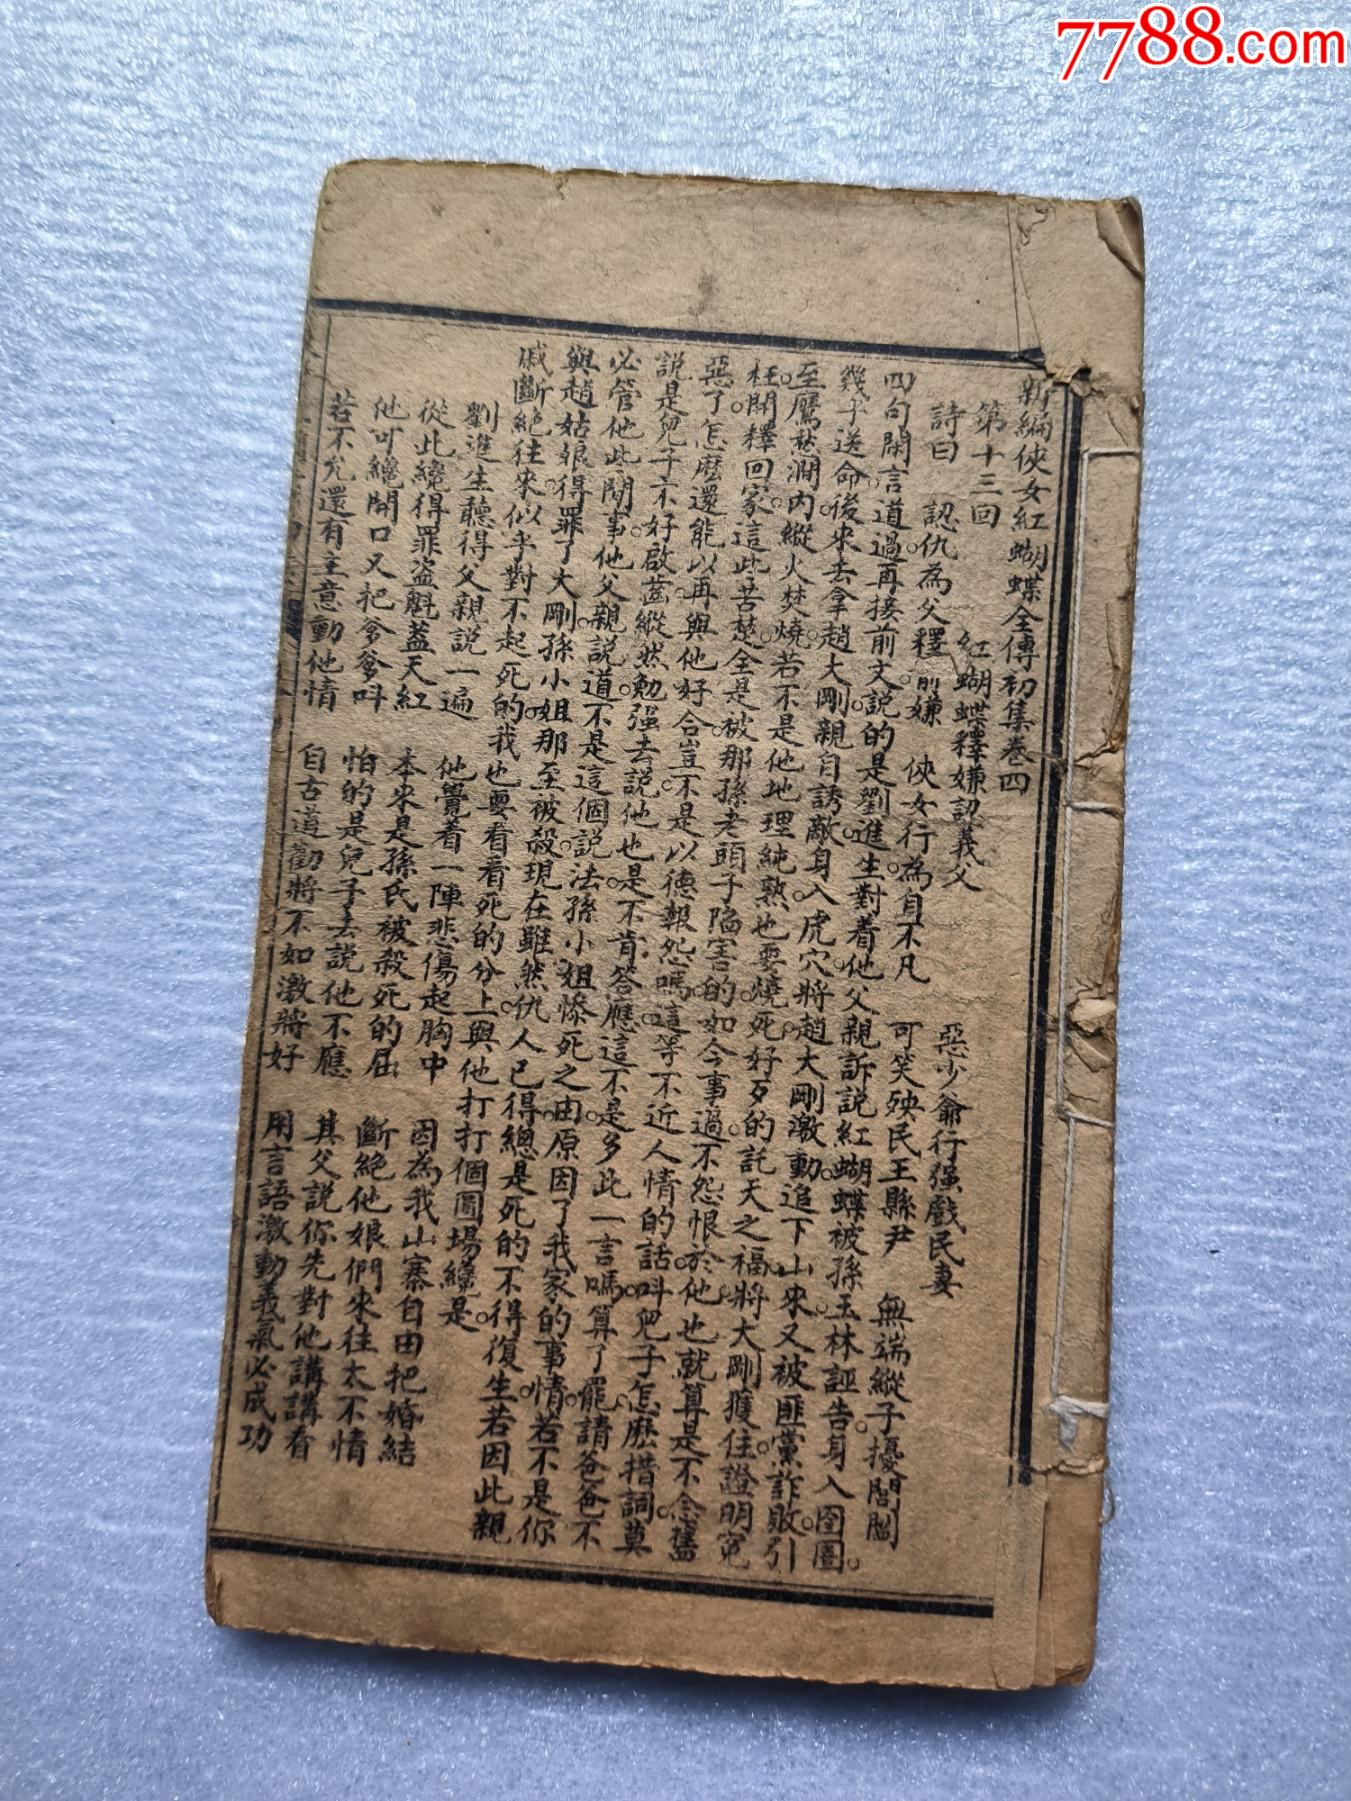 7788.com
新編俠女紅蝴蝶全傳初集卷四
第十三回　紅蝴蝶釋嫌認義父　惡少爺行强戲民妻
詩曰　認仇為父釋前嫌　俠女行為自不凡　可笑殃民王縣尹　無端縱子擾閭閻
四句閑言道過再接前文説的是劉進生對着他父親訴説紅蝴蝶被孫玉林誣告身入囹圄。
幾乎送命後來去拿趙大剛親自誘敵身入虎穴將趙大剛激動追下山來又被匪黨詐敗引
至鷹愁澗内縱火焚燒若不是他地理純熟也要燒死好歹的託天之福將大剛獲住證明冤
枉開釋回家這些苦楚全是被那孫老頭子陷害的如今事過不怨恨於他也就算是不念舊
惡了怎麽還能以再與他好合豈不是以德報怨嗎這等不近人情的話叫兒子怎麽措詞莫
説是兒子不好啟齒縱然勉强去説他也是不肯答應這不是多此一言嗎算了罷請爸爸不
必管他此閒事他父親説道不是這個説法孫小姐慘死之由原因了我家的事情若不是你
與趙姑娘得罪了大剛孫小姐那至被殺現在雖然仇人已得總是死的不得復生若因此親
戚斷絶往來似乎對不起死的我也要看看死的分上與他打打個圓場纔是
劉進生聽得父親説一遍　他覺着一陣悲傷起胸中　因為我山寨自由把婚結
從此纔得罪盗魁蓋天紅　本來是孫氏被殺死的屈　斷絶他娘們來往太不情
他可纔開口又把爹爹叫　怕的是兒子去説他不應　其父説你先對他講講看
若不允還有主意動他情　自古道勸將不如激將好　用言語激動義氣必成功